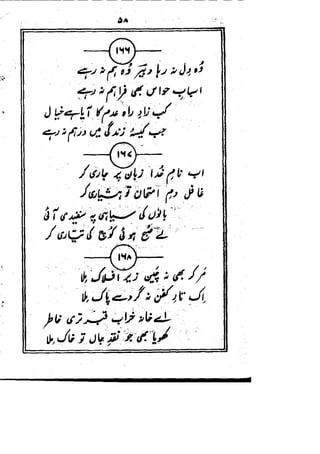 ۵۸
۱۶۶
وُہ دِل نہ رہا دبیر وُہ ہم نہ رہے
اسبابِ حواس بھی فراہم نہ رہے
کب زادِ راہِ عدم کا آیا ہے خیال
جب کیسۂ زندگی میں درہم نہ رہے
۱۶۷
اب نامِ خدا زبان پر جاری کر
غافل دمِ امتحان تو ہشیاری کر
بالوں کی سیاہی پہ سفیدی آئی
لے صبح ہوئی کوچ کی تیّاری کر
۱۶۸
مر کر بھی نہ چین زیرِ افلاک ملا
اک تارِ کفن نہ گرد سے پاک ملا
اے خانہ خراب قبر تری خاطر
کھویا بھی جو نقدِ جاں تو خاک ملا